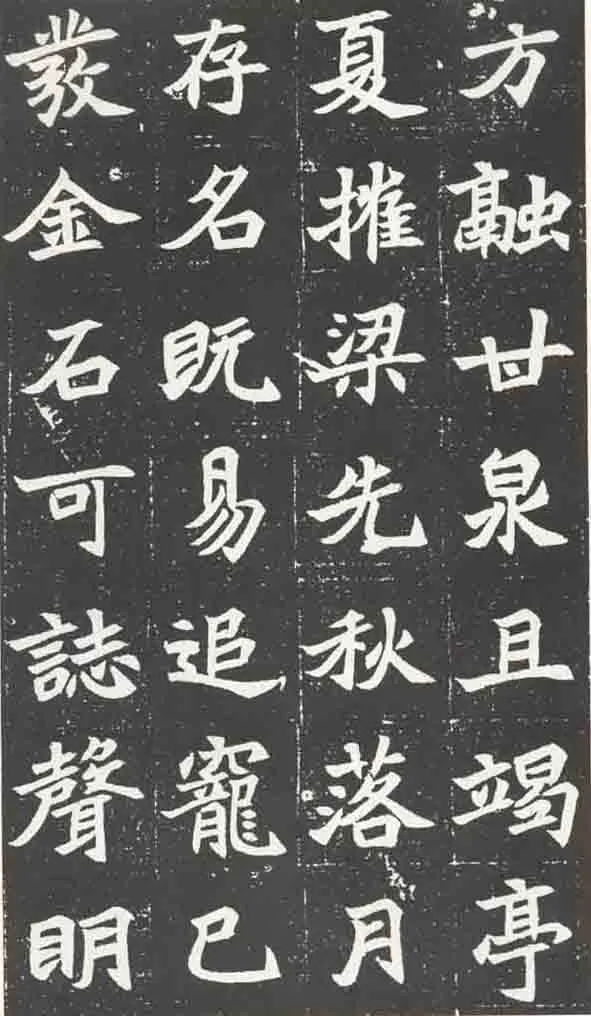 方融甘泉且竭亭
夏摧梁先秋落月
存名既易追寵已
發金石可誌聲明